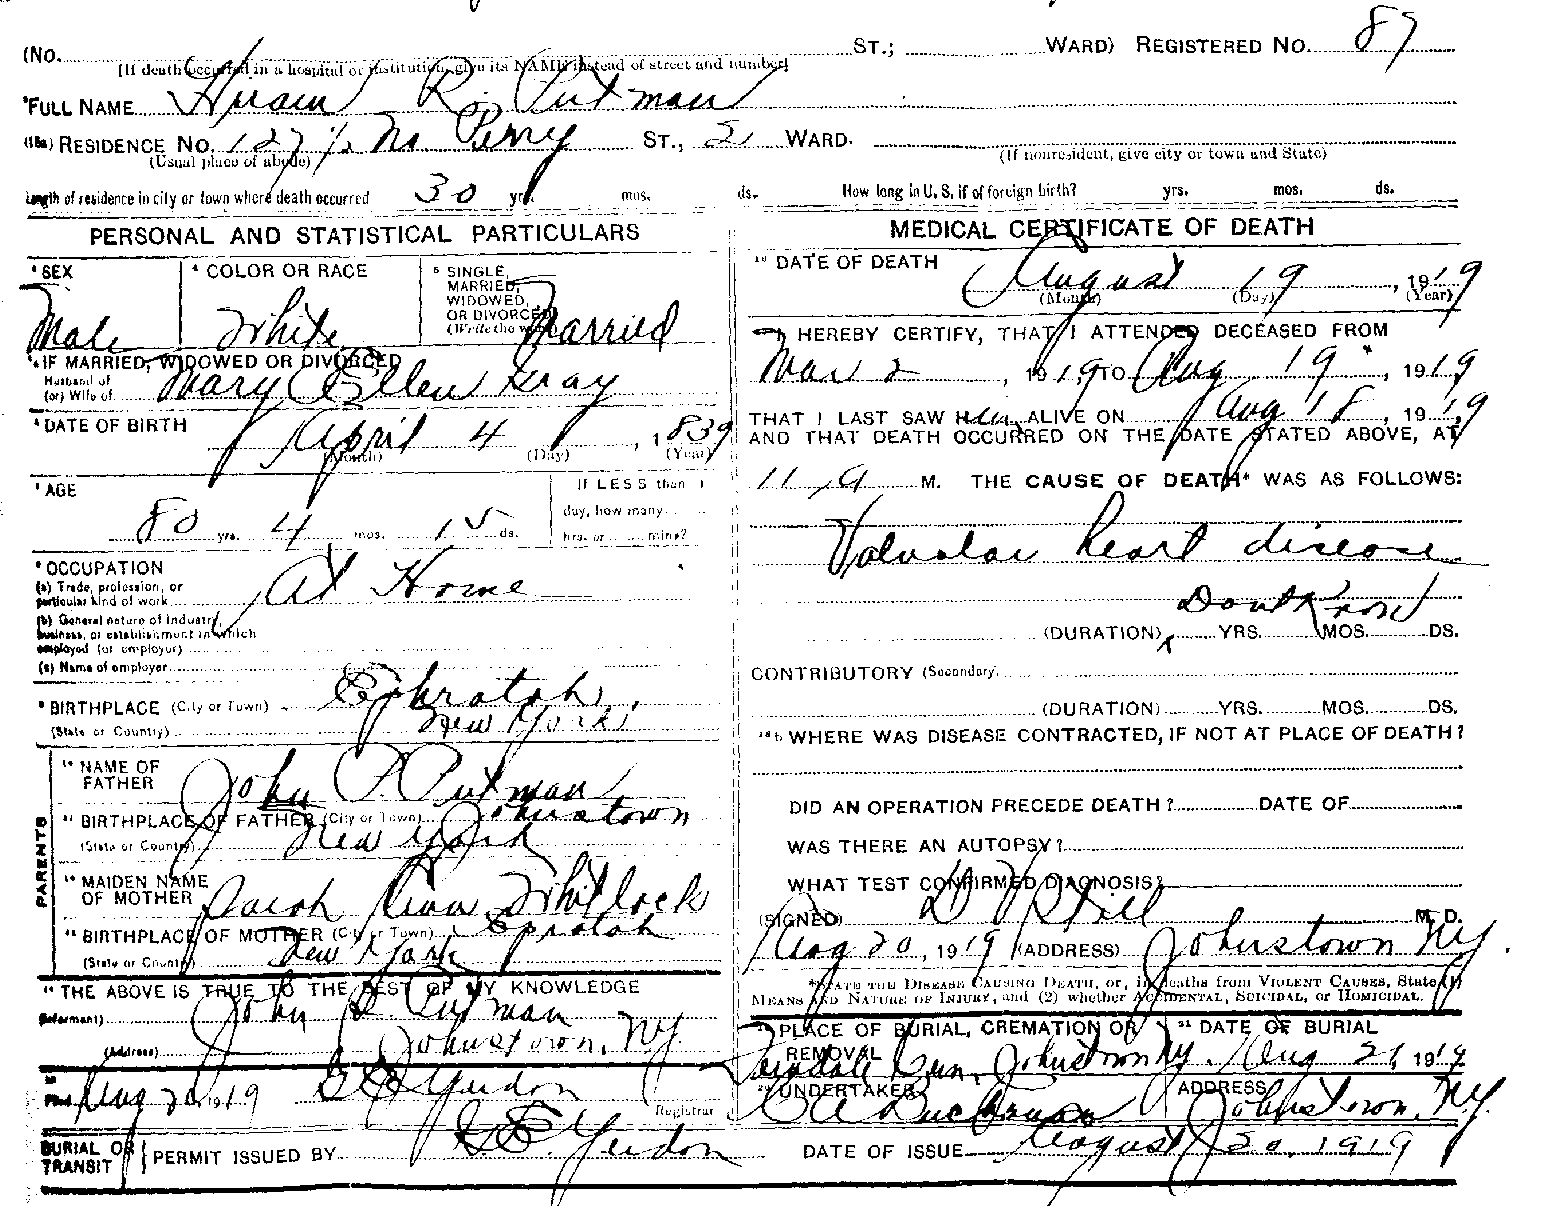 (No. ST.; WARD) REGISTERED NO. 87
[If death occurred in a hospital or institution, give its NAME instead of street and number]
FULL NAME Hiram R. Putman
(18a) RESIDENCE No. 127 ½ No Perry ST., 2 WARD.
(Usual place of abode) (If nonresident, give city or town and State)
Length of residence in city or town where death occurred 30 yrs. mos. ds. How long in U. S. if of foreign birth? yrs. mos. ds.
PERSONAL AND STATISTICAL PARTICULARS
SEX Male
COLOR OR RACE White
SINGLE, MARRIED, WIDOWED, OR DIVORCED (Write the word) Married
IF MARRIED, WIDOWED OR DIVORCED
Husband of
(or) Wife of Mary Ellen Gray
DATE OF BIRTH April 4, 1839
(Month) (Day) (Year)
AGE
80 yrs. 4 mos. 15 ds.
IF LESS than 1
day, how many
hrs. or mins?
OCCUPATION
(a) Trade, profession, or
particular kind of work At Home
(b) General nature of Industry,
business, or establishment in which
employed (or employer)
(c) Name of employer
BIRTHPLACE (City or Town) Ephratah
(State or Country) New York
PARENTS
NAME OF
FATHER John P. Putman
BIRTHPLACE OF FATHER (City or Town) Johnstown
(State or Country) New York
MAIDEN NAME
OF MOTHER Sarah Ann Whitlock
BIRTHPLACE OF MOTHER (City or Town) Epratah
(State or Country) New York
THE ABOVE IS TRUE TO THE BEST OF MY KNOWLEDGE
(Informant) John Putman
(Address) Johnstown, N.Y.
Filed Aug 20, 1919 Yuidon
Registrar
MEDICAL CERTIFICATE OF DEATH
DATE OF DEATH August 19, 1919
(Month) (Day) (Year)
I HEREBY CERTIFY, THAT I ATTENDED DECEASED FROM
Mar 2, 1919, TO Aug 19, 1919
THAT I LAST SAW him ALIVE ON Aug 18, 1919
AND THAT DEATH OCCURRED ON THE DATE STATED ABOVE, AT
11 a M. THE CAUSE OF DEATH* WAS AS FOLLOWS:
Valvular heart disease
Dont Know
(DURATION) YRS. MOS. DS.
CONTRIBUTORY (Secondary)
(DURATION) YRS. MOS. DS.
18b WHERE WAS DISEASE CONTRACTED, IF NOT AT PLACE OF DEATH?
DID AN OPERATION PRECEDE DEATH? DATE OF
WAS THERE AN AUTOPSY?
WHAT TEST CONFIRMED DIAGNOSIS?
(SIGNED) M. D.
Aug 20, 1919 (ADDRESS) Johnstown N.Y.
*STATE THE DISEASE CAUSING DEATH, or, in deaths from VIOLENT CAUSES, State (1)
MEANS AND NATURE OF INJURY, and (2) whether ACCIDENTAL, SUICIDAL, or HOMICIDAL.
PLACE OF BURIAL, CREMATION OR
REMOVAL Johnstown N.Y.
DATE OF BURIAL
Aug 21, 1919
UNDERTAKER Buchanan
ADDRESS
Johnstown, N.Y.
BURIAL OR
TRANSIT PERMIT ISSUED BY Yuidon DATE OF ISSUE August 20, 1919